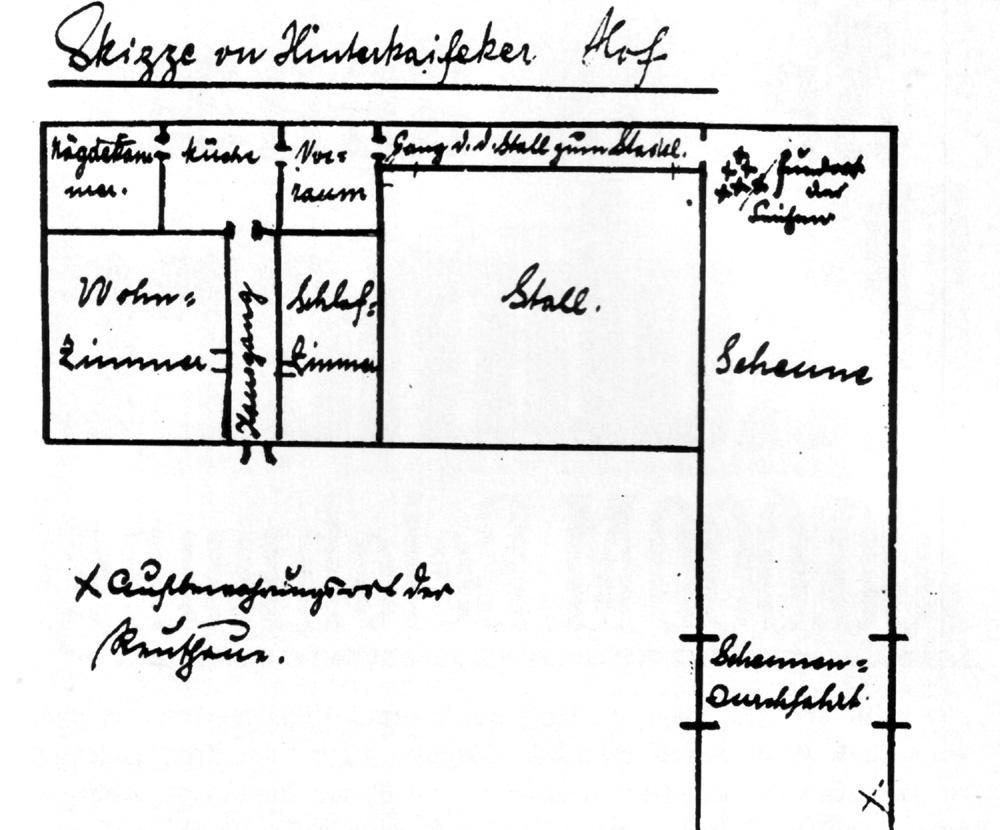 Skizze von Hinterkaifeker Hof
Mägdekam=
mer.
Küche
Vor=
raum
Gang v. d. Stall zum Stadel.
Fundort
der
Leichen
Wohn=
Zimmer
Hausgang
Schlaf=
Zimmer
Stall.
Scheune
x Aufbewahrungsort der
Reuthaue.
Scheunen=
Durchfahrt.
x